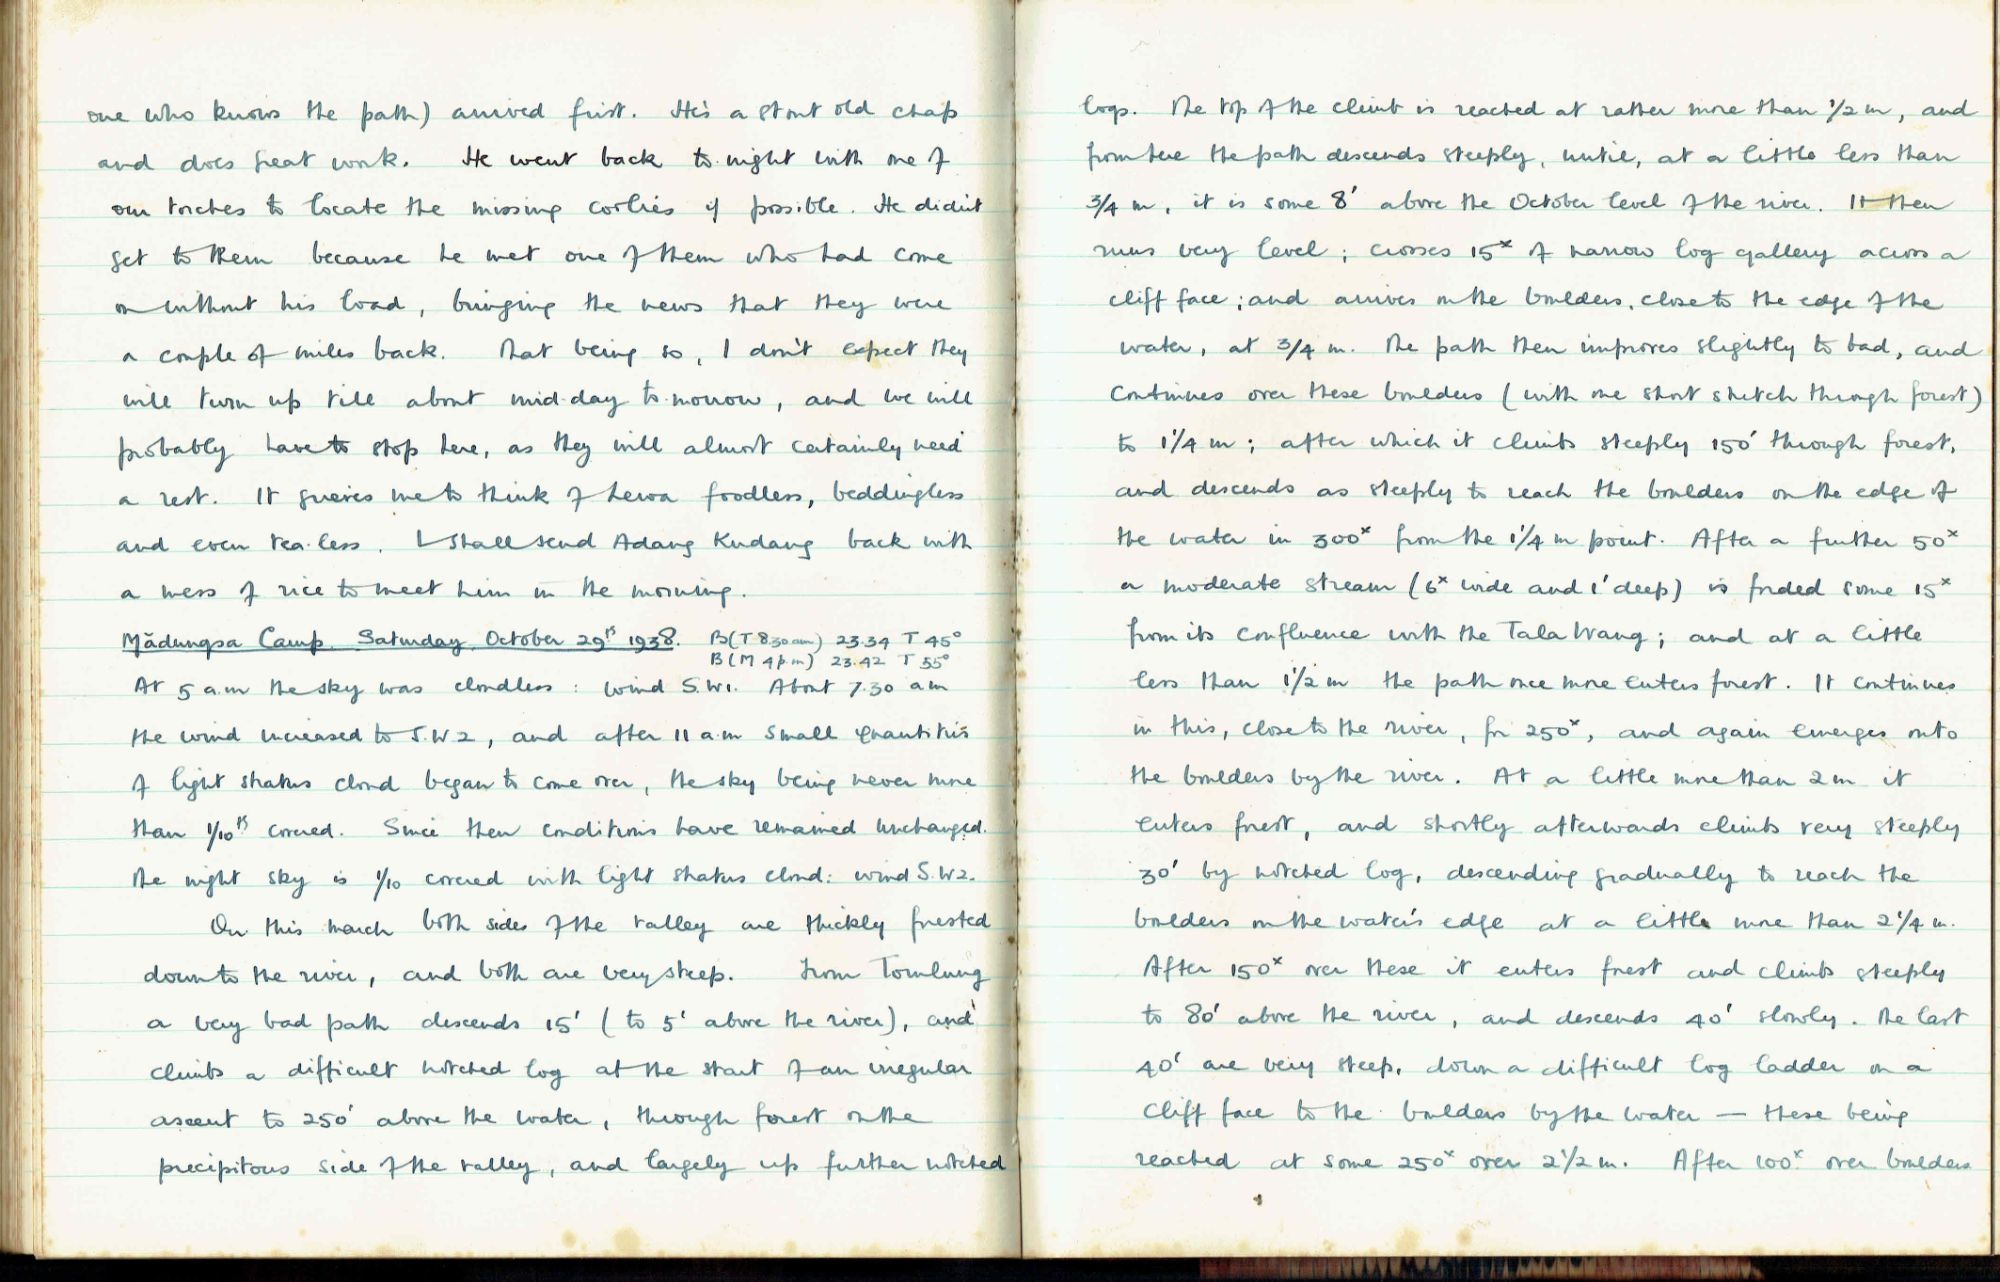 one who knows the path) arrived first. He's a stout old chap
and does great work. He went back to-night with one of
our torches to locate the missing coolies if possible. He didn't
get to them because he met one of them who had come
on without his load, bringing the news that they were
a couple of miles back. That being so, I don't expect they
will turn up till about mid-day to-morrow, and we will
probably have to stop here, as they will almost certainly need
a rest. It grieves me to think of Lewa foodless, beddingless
and even tea-less. I shall send Adang Kudang back with
a mess of rice to meet him in the morning.
Mādungsa Camp. Saturday, October 29th 1938. B(T 8.30am) 23.34 T 45°
B(M 4p.m) 23.42 T 55°
At 5 a.m the sky was cloudless: wind S.W1. About 7.30 am
the wind increased to S.W2, and after 11 a.m small quantities
of light stratus cloud began to come over, the sky being never more
than 1/10th covered. Since then conditions have remained unchanged.
The night sky is 1/10 covered with light stratus cloud: wind S.W2.
On this march both sides of the valley are thickly forested
down to the river, and both are very steep. From Tomlung
a very bad path descends 15' (to 5' above the river), and
climbs a difficult notched log at the start of an irregular
ascent to 250' above the water, through forest on the
precipitous side of the valley, and largely up further notched
logs. The top of the climb is reached at rather more than 1/2 m, and
from here the path descends steeply, until, at a little less than
3/4 m, it is some 8' above the October level of the river. It then
runs very level; crosses 15x of narrow log gallery across a
cliff face; and arrives on the boulders, close to the edge of the
water, at 3/4 m. The path then improves slightly to bad, and
continues over these boulders (with one short stretch through forest)
to 1 1/4 m; after which it climbs steeply 150' through forest,
and descends as steeply to reach the boulders on the edge of
the water in 300x from the 1 1/4 m point. After a further 50x
a moderate stream (6x wide and 1' deep) is forded some 15x
from its confluence with the Tala Wang; and at a little
less than 1 1/2 m the path once more enters forest. It continues
in this, close to the river, for 250x, and again emerges onto
the boulders by the river. At a little more than 2 m it
enters forest, and shortly afterwards climbs very steeply
30' by notched log, descending gradually to reach the
boulders on the water's edge at a little more than 2 1/4 m.
After 150x over these it enters forest and climbs steeply
to 80' above the river, and descends 40' slowly. The last
40' are very steep, down a difficult log ladder on a
cliff face to the boulders by the water — these being
reached at some 250x over 2 1/2 m. After 100x over boulders